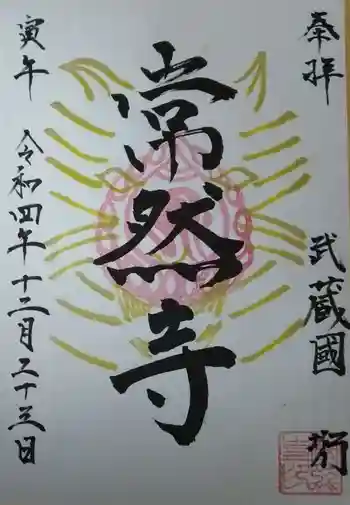 奉拝
武蔵國
常然寺
寅年
令和四年十二月二十三日